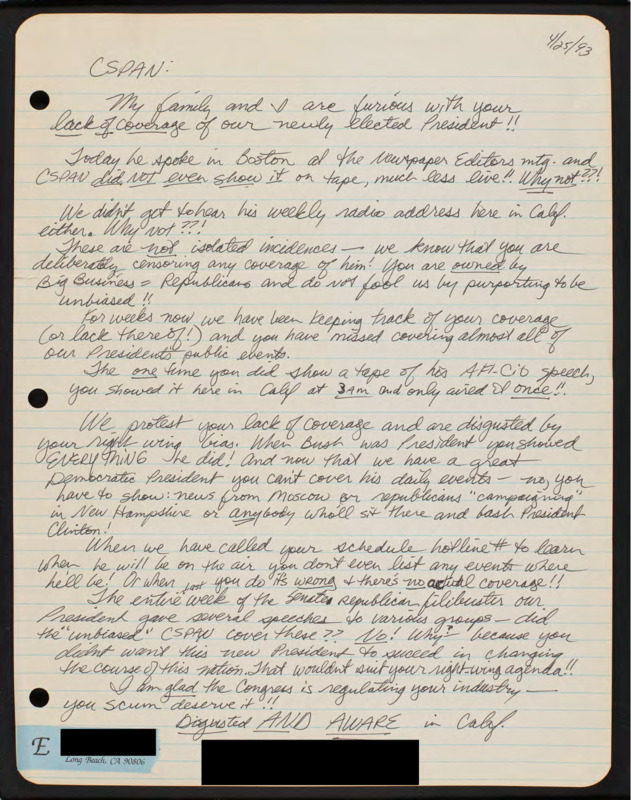 4/25/93
CSPAN:
My family and I are furious with your
lack of coverage of our newly elected President!!
Today he spoke in Boston at the Newspaper Editors mtg. and
CSPAN did NOT even show it on tape, much less live!! Why not??!
We didn't get to hear his weekly radio address here in Calif.
either. Why not??!
These are not isolated incidences — we know that you are
deliberately censoring any coverage of him! You are owned by
Big Business = Republicans and do not fool us by purporting to be
unbiased!!
For weeks now we have been keeping track of your coverage
(or lack thereof!) and you have missed covering almost all of
our President's public events.
The one time you did show a tape of his AFL-CIO speech,
you showed it here in Calif at 3AM and only aired it once!!
We protest your lack of coverage and are disgusted by
your right wing bias. When Bush was President you showed
EVERYTHING he did! And now that we have a great
Democratic President you can't cover his daily events — no, you
have to show: news from Moscow or republicans "campaigning"
in New Hampshire or anybody who'll sit there and bash President
Clinton!
When we have called your schedule hotline # to learn
when he will be on the air you don't even list any events where
he'll be! Or when you do its wrong & there's no actual coverage!!
The entire week of the Senate republican filibuster our
President gave several speeches to various groups — did
the "unbiased" CSPAN cover these?? No! Why? because you
didn't want this new President to succeed in changing
the course of this nation. That wouldn't suit your right-wing agenda!!
I am glad the Congress is regulating your industry —
you scum deserve it!!
Disgusted AND AWARE in Calif.
E
Long Beach, CA 90806